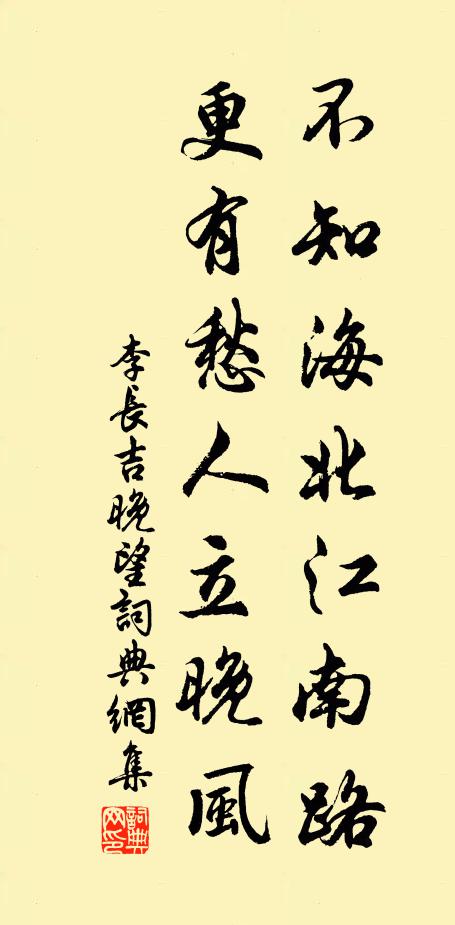 不知海北江南路
更有愁人立晚風
李長吉晚望詞典網集
詞典網印